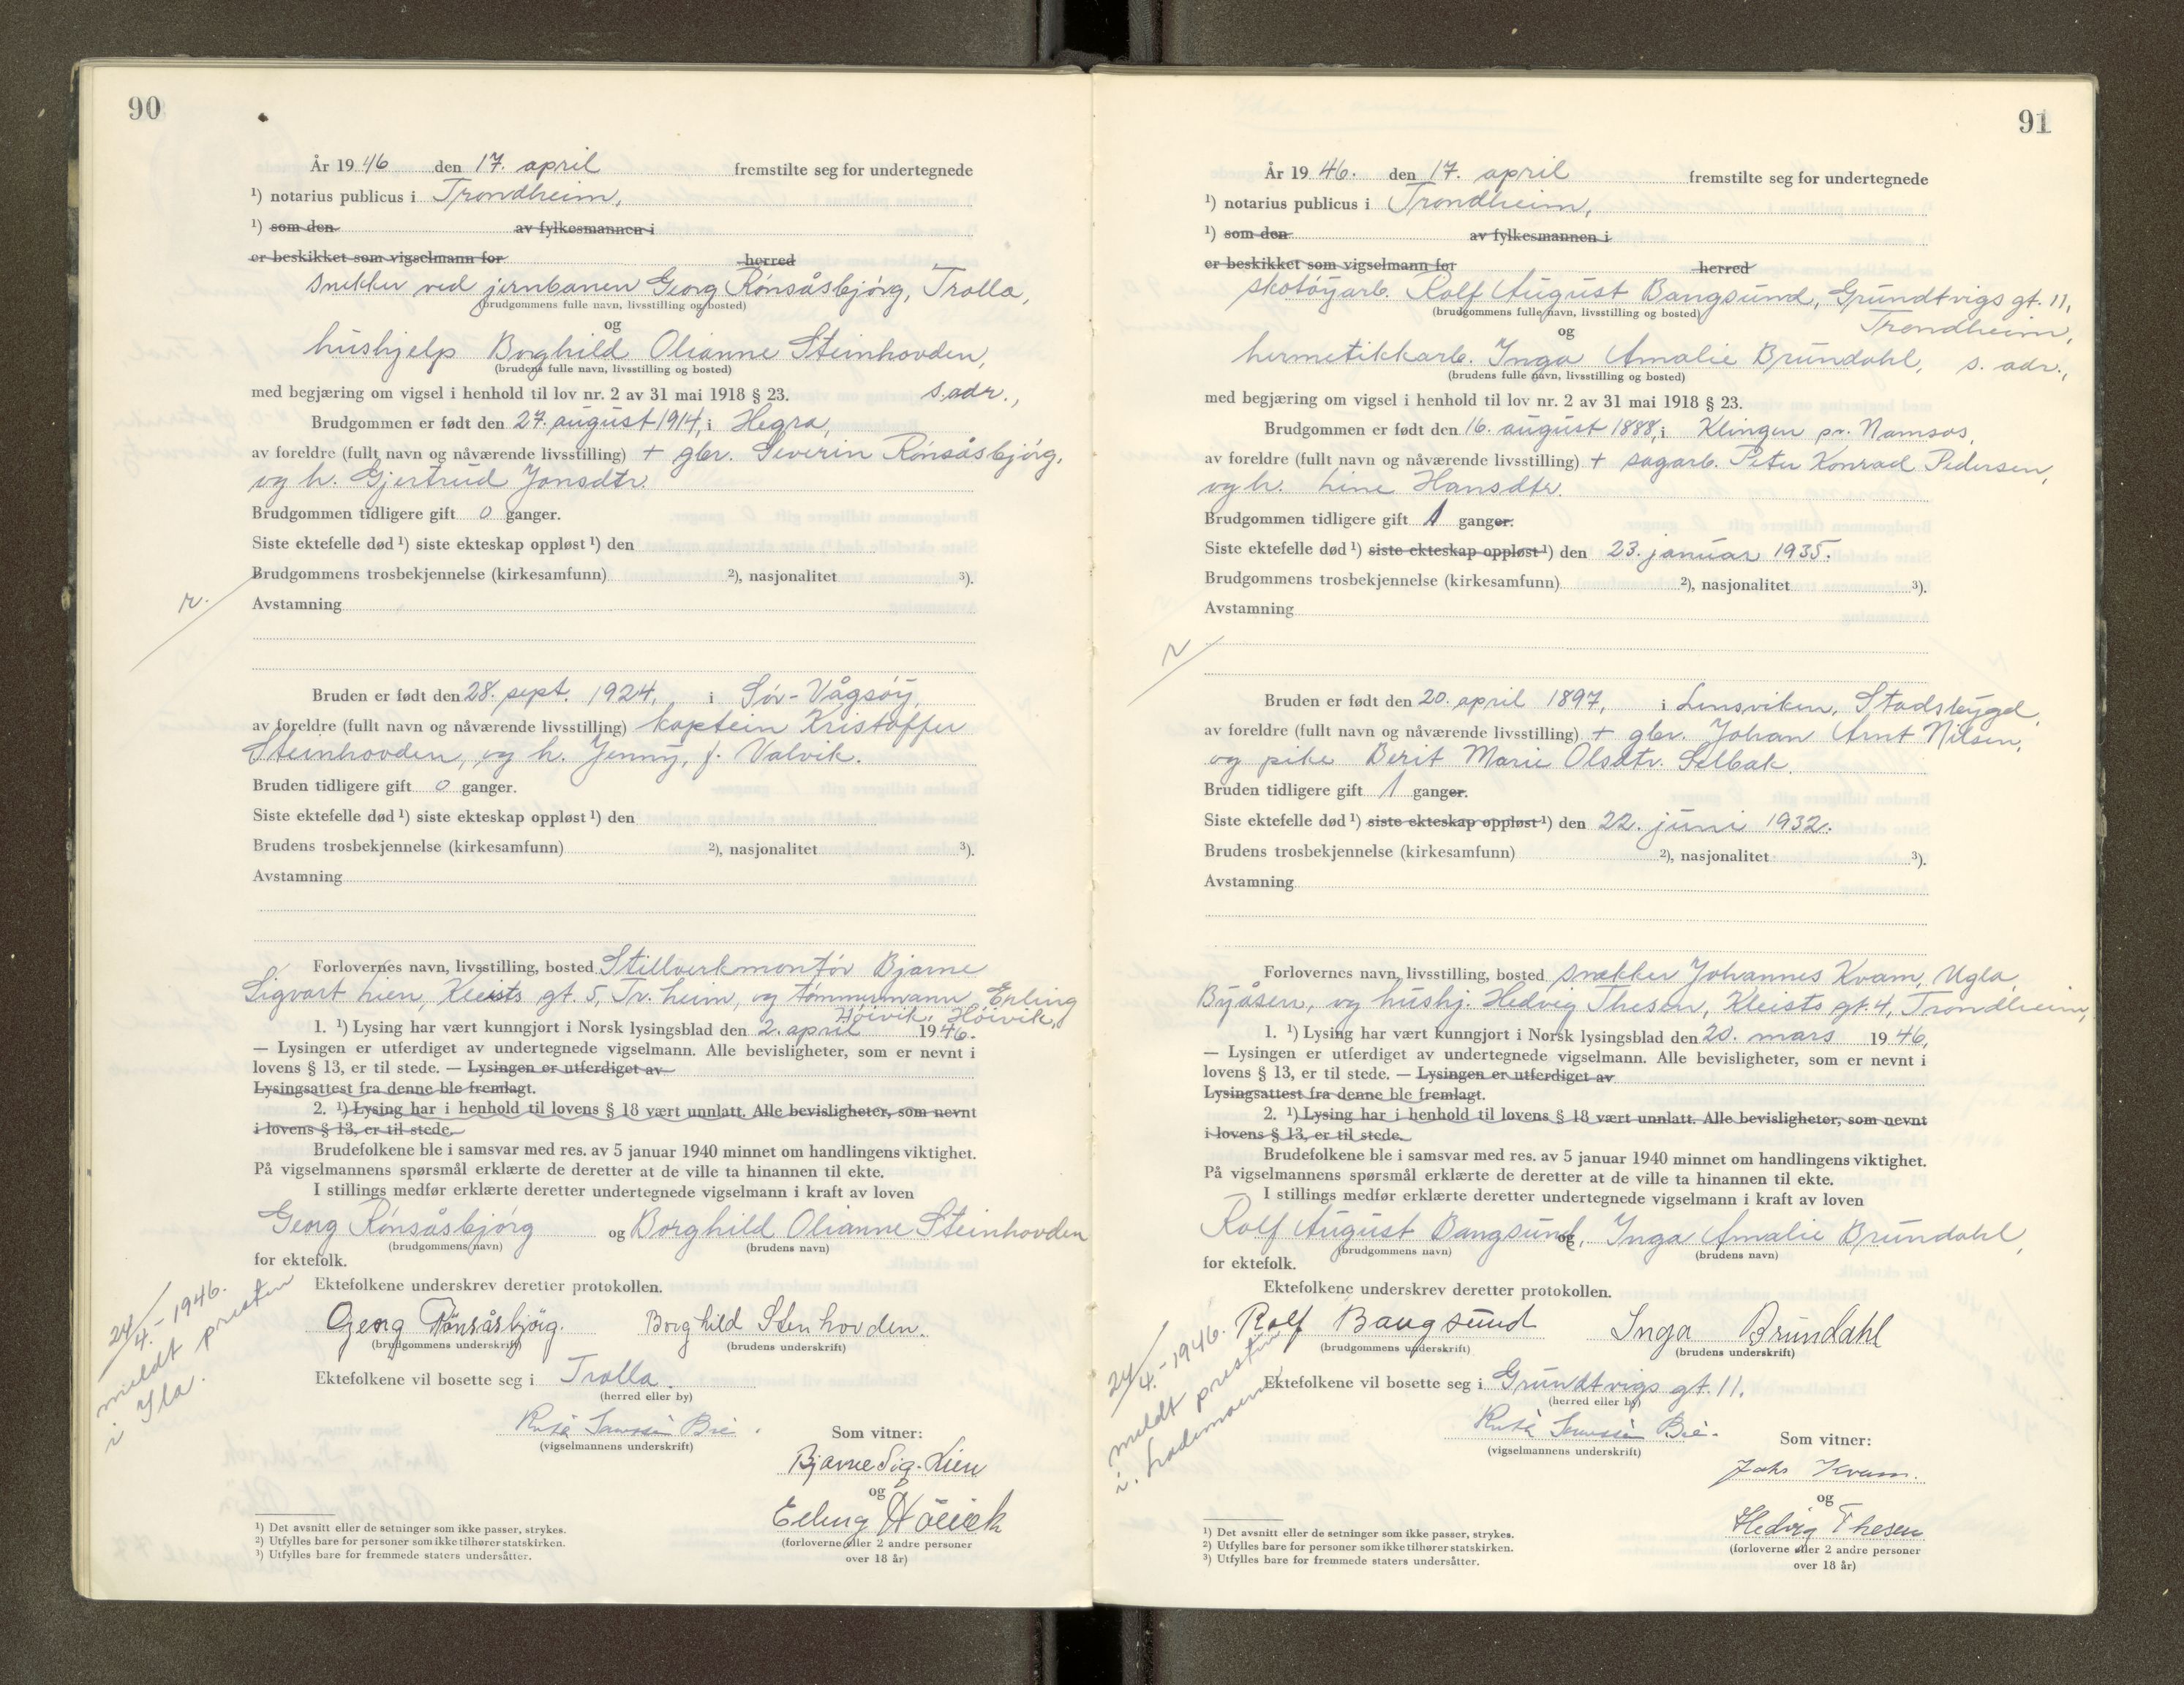 90
År 1946 den 17. april fremstilte seg for undertegnede
¹) notarius publicus i Trondheim,
¹) som den av fylkesmannen i
er beskikket som vigselmann for herred
snekker ved jernbanen Georg Rönsåsbjörg, Trolla,
(brudgommens fulle navn, livsstilling og bosted)
og
hushjelp Borghild Olianne Steinhovden,
(brudens fulle navn, livsstilling og bosted)
med begjæring om vigsel i henhold til lov nr. 2 av 31 mai 1918 § 23. s. adr.,
Brudgommen er født den 27. august 1914, i Hegra,
av foreldre (fullt navn og nåværende livsstilling) + gbr. Severin Rönsåsbjörg,
og h. Gjertrud Jonsdtr.
Brudgommen tidligere gift 0 ganger.
Siste ektefelle død ¹) siste ekteskap oppløst ¹) den
Brudgommens trosbekjennelse (kirkesamfunn) ²), nasjonalitet ³).
r.
Avstamning
Bruden er født den 28. sept. 1924, i Sör-Vågsöy,
av foreldre (fullt navn og nåværende livsstilling) kaptein Kristoffer
Steinhovden, og h. Jenny, f. Valvik.
Bruden tidligere gift 0 ganger.
Siste ektefelle død ¹) siste ekteskap oppløst ¹) den
Brudens trosbekjennelse (kirkesamfunn) ²), nasjonalitet ³).
Avstamning
Forlovernes navn, livsstilling, bosted Stillverkmontör Bjarne
Sigvart Lien, Kleists gt. 5, Tr. heim, og tömmermann Erling
Höivik, Höivik,
1. ¹) Lysing har vært kunngjort i Norsk lysingsblad den 2. april 1946.
— Lysingen er utferdiget av undertegnede vigselmann. Alle bevisligheter, som er nevnt i
lovens § 13, er til stede. — Lysingen er utferdiget av
Lysingsattest fra denne ble fremlagt.
2. ¹) Lysing har i henhold til lovens § 18 vært unnlatt. Alle bevisligheter, som nevnt
i lovens § 13, er til stede.
Brudefolkene ble i samsvar med res. av 5 januar 1940 minnet om handlingens viktighet.
På vigselmannens spørsmål erklærte de deretter at de ville ta hinannen til ekte.
I stillings medfør erklærte deretter undertegnede vigselmann i kraft av loven
Georg Rönsåsbjörg og Borghild Olianne Steinhovden
(brudgommens navn) (brudens navn)
for ektefolk.
Ektefolkene underskrev deretter protokollen.
24/4.-1946.
meldt presten
i Ila.
Georg Rönsåsbjörg. Borghild Stenhovden.
(brudgommens underskrift) (brudens underskrift)
Ektefolkene vil bosette seg i Trolla.
(herred eller by)
(vigselmannens underskrift)
Som vitner:
Bjarne Sig. Lien
og
Erling Höivik
(forloverne eller 2 andre personer
over 18 år)
¹) Det avsnitt eller de setninger som ikke passer, strykes.
²) Utfylles bare for personer som ikke tilhører statskirken.
³) Utfylles bare for fremmede staters undersåtter.
91
År 1946. den 17. april fremstilte seg for undertegnede
¹) notarius publicus i Trondheim,
¹) som den av fylkesmannen i
er beskikket som vigselmann for herred
skotöyarb. Rolf August Bangsund, Grundtvigs gt. 11,
(brudgommens fulle navn, livsstilling og bosted)
Trondheim,
og
hermetikkarb. Inga Amalie Brundahl, s. adr.,
(brudens fulle navn, livsstilling og bosted)
med begjæring om vigsel i henhold til lov nr. 2 av 31 mai 1918 § 23.
Brudgommen er født den 16. august 1888, i Klingen pr. Namsos,
av foreldre (fullt navn og nåværende livsstilling) + sagarb. Peter Konrad Pedersen,
og h. Line Hansdtr.
Brudgommen tidligere gift 1 ganger.
Siste ektefelle død ¹) siste ekteskap oppløst ¹) den 23. januar 1935.
Brudgommens trosbekjennelse (kirkesamfunn) ²), nasjonalitet ³).
Avstamning
r
Bruden er født den 20. april 1897, i Lensviken, Stadsbygd,
av foreldre (fullt navn og nåværende livsstilling) + gbr. Johan Arnt Nilsen,
og pike Berit Marie Olsdtr. Selbak.
Bruden tidligere gift 1 ganger.
Siste ektefelle død ¹) siste ekteskap oppløst ¹) den 22. juni 1932.
Brudens trosbekjennelse (kirkesamfunn) ²), nasjonalitet ³).
Avstamning
Forlovernes navn, livsstilling, bosted snekker Johannes Kvam, Ugla,
Byåsen, og hushj. Hedvig Thesen, Kleists gt. 4, Trondheim,
1. ¹) Lysing har vært kunngjort i Norsk lysingsblad den 20. mars 1946,
— Lysingen er utferdiget av undertegnede vigselmann. Alle bevisligheter, som er nevnt i
lovens § 13, er til stede. — Lysingen er utferdiget av
Lysingsattest fra denne ble fremlagt.
2. ¹) Lysing har i henhold til lovens § 18 vært unnlatt. Alle bevisligheter, som nevnt
i lovens § 13, er til stede.
Brudefolkene ble i samsvar med res. av 5 januar 1940 minnet om handlingens viktighet.
På vigselmannens spørsmål erklærte de deretter at de ville ta hinannen til ekte.
I stillings medfør erklærte deretter undertegnede vigselmann i kraft av loven
Rolf August Bangsund, og Inga Amalie Brundahl,
(brudgommens navn) (brudens navn)
for ektefolk.
Ektefolkene underskrev deretter protokollen.
24/4.-1946.
meldt presten
i Lademoen.
Rolf Bangsund Inga Brundahl
(brudgommens underskrift) (brudens underskrift)
Ektefolkene vil bosette seg i Grundtvigs gt. 11.
(herred eller by)
(vigselmannens underskrift)
Som vitner:
Johs Kvam.
og
Hedvig Thesen
(forloverne eller 2 andre personer
over 18 år)
¹) Det avsnitt eller de setninger som ikke passer, strykes.
²) Utfylles bare for personer som ikke tilhører statskirken.
³) Utfylles bare for fremmede staters undersåtter.